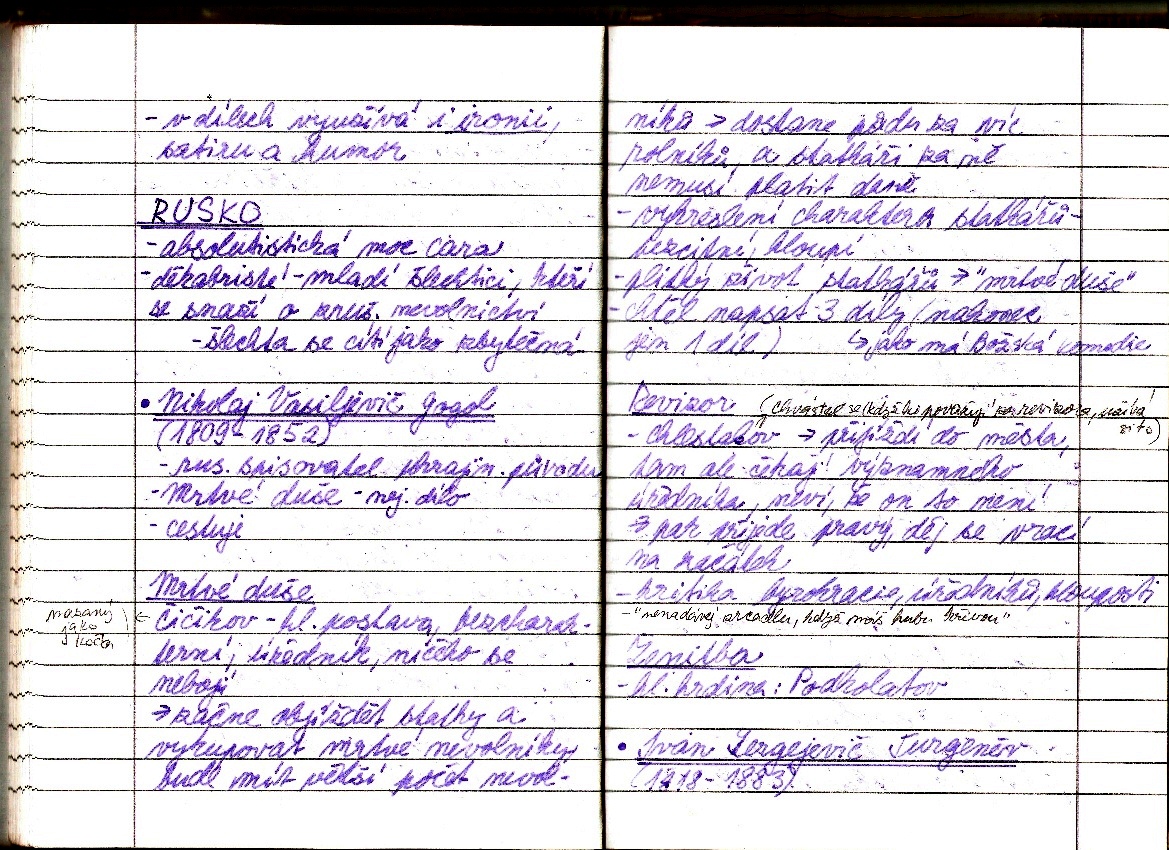 - v dílech využívá i ironii,
satiru a humor
RUSKO
- absolutistická moc cara
- děkabristé - mladí šlechtici, kteří
se snaží o zruš. nevolnictví
- šlechta se cítí jako zbytečná
• Nikolaj Vasiljevič Gogol
(1809 - 1852)
- rus. spisovatel ukrajin. původu
- Mrtvé duše - nej. dílo
- cestuje
Mrtvé duše
mazaný
jako
kočka
← Čičikov - hl. postava, bezcharak-
terní, úředník, ničeho se
nebojí
→ začne objíždět statky a
vykupovat mrtvé nevolníky
bude mít větší počet nevol-
níků → dostane půdu za víc
rolníků, a statkáři za ně
nemusí platit daně
- vykreslení charakteru statkářů -
bezcitní, hloupí
- plitký život statkářů → "mrtvé duše"
- chtěl napsat 3 díly (nakonec
jen 1 díl) ↳ jako má Božská komedie
Revizor (chvástal se (když ho považují za revizora, užívá
si to)
- Chlestakov → přijíždí do města,
tam ale čekají významného
úředníka, neví, že on to není
→ pak přijede pravý, děj se vrací
na začátek
- kritika byrokracie, úředníků, hlouposti
- "nenadávej zrcadlu, když máš hubu křivou"
Ženitba
- hl. hrdina: Podkolatov
• Ivan Sergejevič Turgeněv
(1818 - 1883)